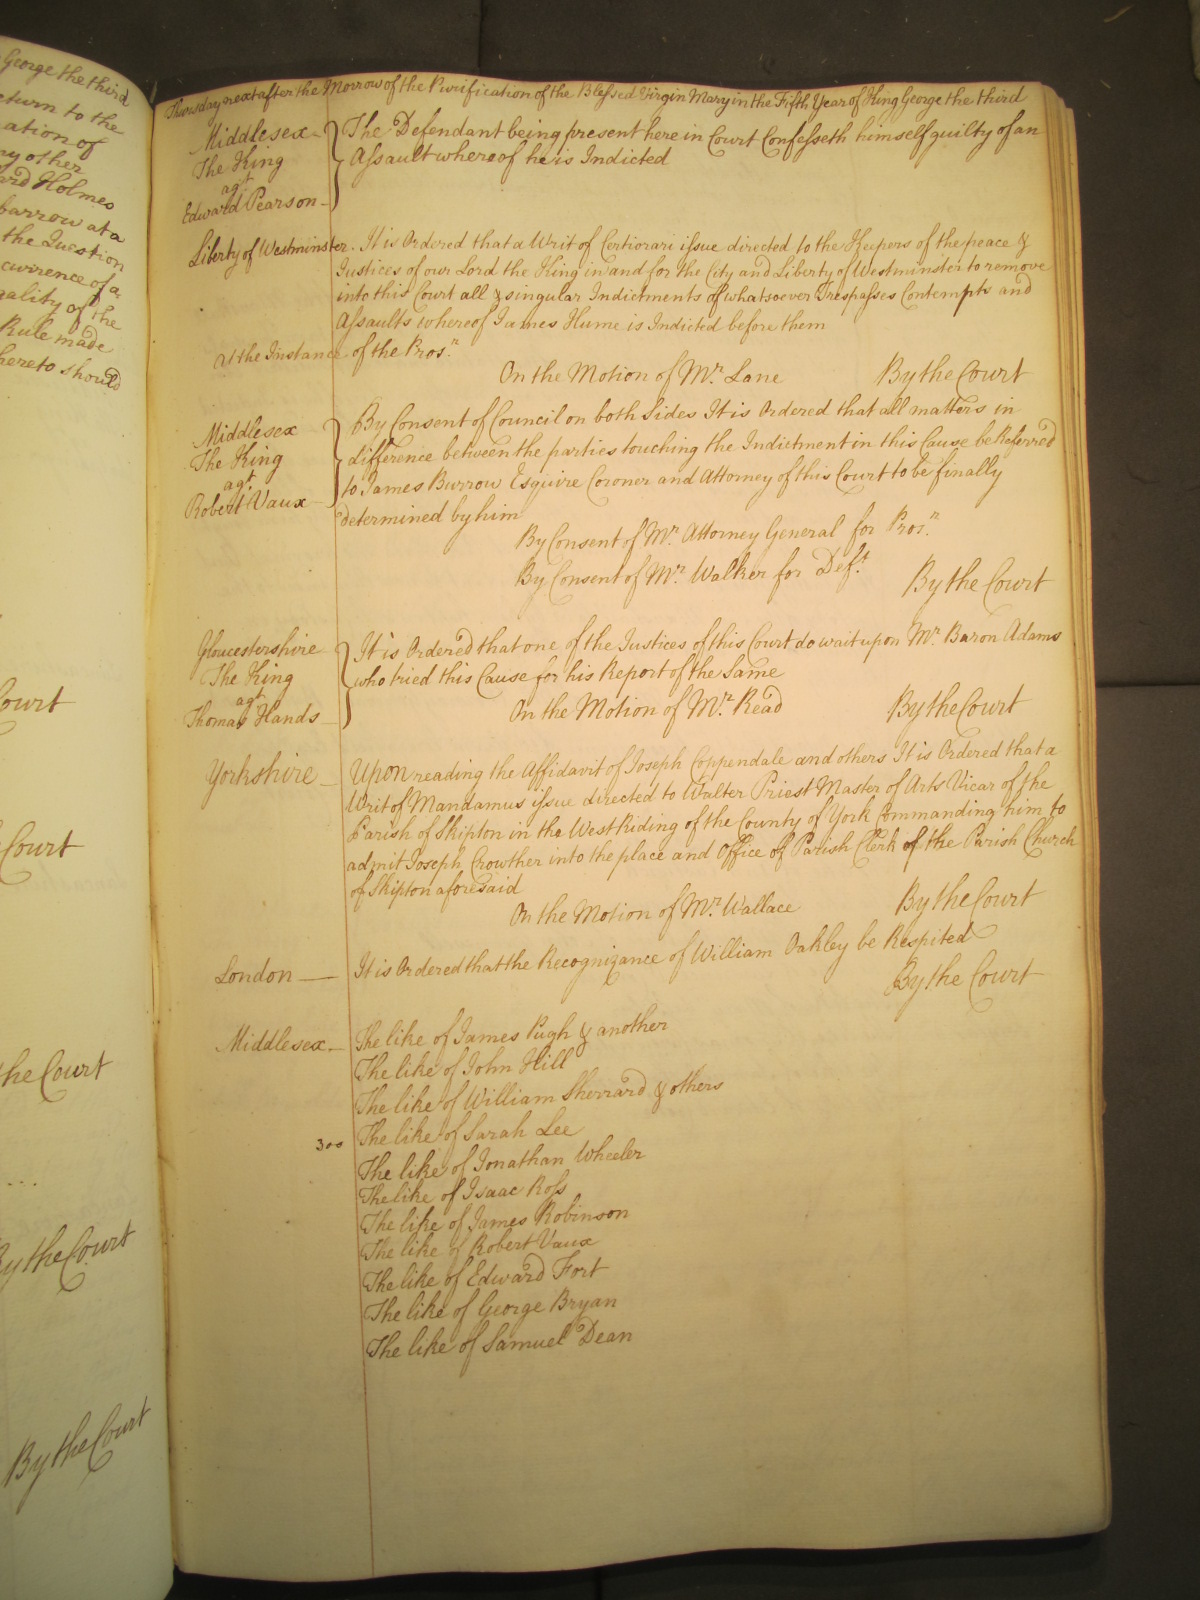 George the third
eturn to the
ation of
ny other
ard Holmes
barrow at a
the Question
currence of a
gality of the
Rule made
hereto should
Court
Court
the Court
By the Court
By the Court
Thursday next after the Morrow of the Purification of the Blessed Virgin Mary in the Fifth Year of King George the third
Middlesex
The King
agt
Edward Pearson
The Defendant being present here in Court Confesseth himself guilty of an
Assault whereof he is Indicted
Liberty of Westminster. It is Ordered that a Writ of Certiorari issue directed to the Keepers of the peace &
Justices of our Lord the King in and for the City and Liberty of Westminster to remove
into this Court all & singular Indictments of whatsoever Trespasses Contempts and
Assaults whereof James Hume is Indicted before them
at the Instance of the Pros.r
On the Motion of Mr. Lane By the Court
Middlesex
The King
agt.
Robert Vaux
By Consent of Council on both Sides It is Ordered that all matters in
difference between the parties touching the Indictment in this Cause be Referred
to James Burrow Esquire Coroner and Attorney of this Court to be finally
determined by him
By Consent of Mr. Attorney General for Pros.r
By Consent of Mr. Walker for Def.t
By the Court
Gloucestershire
The King
agt
Thomas Hands
It is Ordered that one of the Justices of this Court do wait upon Mr. Baron Adams
who tried this Cause for his Report of the Same
On the Motion of Mr. Read By the Court
Yorkshire Upon reading the Affidavit of Joseph Coppendale and others It is Ordered that a
Writ of Mandamus issue directed to Walter Priest Master of Arts Vicar of the
Parish of Skipton in the West Riding of the County of York Commanding him to
admit Joseph Crowther into the place and Office of Parish Clerk of the Parish Church
of Skipton aforesaid
On the Motion of Mr. Wallace By the Court
London It is Ordered that the Recognizance of William Oakley be Respited
By the Court
Middlesex The like of James Pugh & another
The like of John Hill
The like of William Sherrard & others
300 The like of Sarah Lee
The like of Jonathan Wheeler
The like of Isaac Ross
The like of James Robinson
The like of Robert Vaux
The like of Edward Fort
The like of George Bryan
The like of Samuel Dean